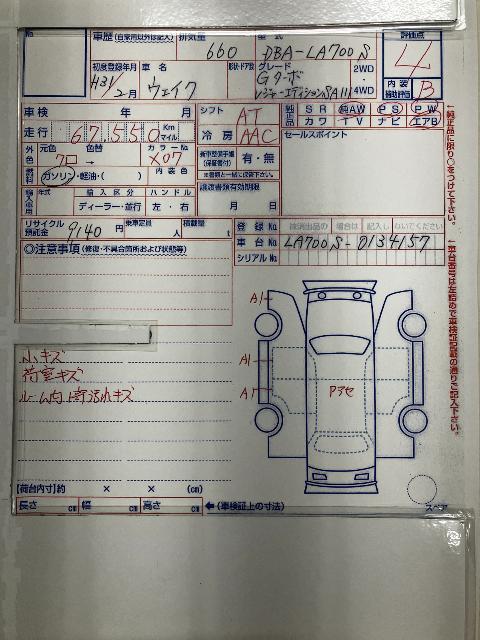 No.
車歴 (自家用以外は記入) 排気量 型式 評価点
660 DBA-LA700S 4
初度登録年月 車名 形状・ドア数 グレード 2WD 4WD
H31/2月 ウェイク Gターボ
レジャーエディションSAIII
内装補助評価 B
車検 年 月 シフト AT 純正品 SR 純AW PS PW
走行 67,550 Km マイル 冷房 AAC カワ TV ナビ エアB
外色 元色 色替 カラーNo. 新車整備手帳(保証書付) 有・無 セールスポイント
クロ → X07 ※書類と一緒に保管下さい。
燃料 ガソリン・軽油・( ) 内装色 譲渡書類有効期限
輸入車用 年式 輸入区分 ハンドル 月 日
ディーラー・並行 左・右
リサイクル預託金 9140円 乗車定員 人 積載量 t 登録No. 検済出品の場合は記入しないでください
車台No. LA700S-0134157
◎注意事項 (修復・不具合箇所および状態等) シリアルNo.
←純正品に限り○をつけて下さい。
←車台番号は左詰めで車検証記載の通りご記入下さい。
A1
小キズ A1
荷室キズ
ルーム内上荷汚れキズ A1 Pアセ
【荷台内寸】約 × × (cm)
長さ cm 幅 cm 高さ cm ←(車検証上の寸法) スペア